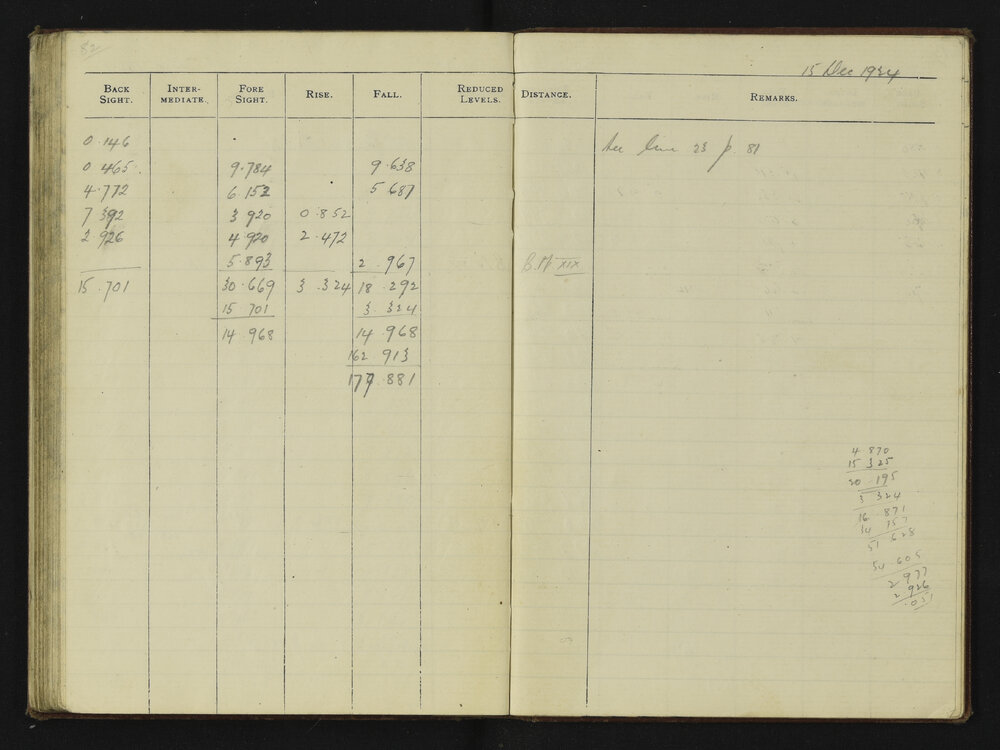 82
15 Dec 1924
BACK SIGHT. INTER-MEDIATE. FORE SIGHT. RISE. FALL. REDUCED LEVELS. DISTANCE. REMARKS.
0.146 See line 23 p. 81
0.465 9.784 9.638
4.772 6.152 5.687
7.392 3.920 0.852
2.926 4.920 2.472
5.893 2.967 B.M XIX
15.701 30.669 3.324 18.292
15.701 3.324
14.968 14.968
162.913
177.881
4 870
15 325
20.195
3 324
16.871
34 757
51.628
54 605
2 977
2 926
.051